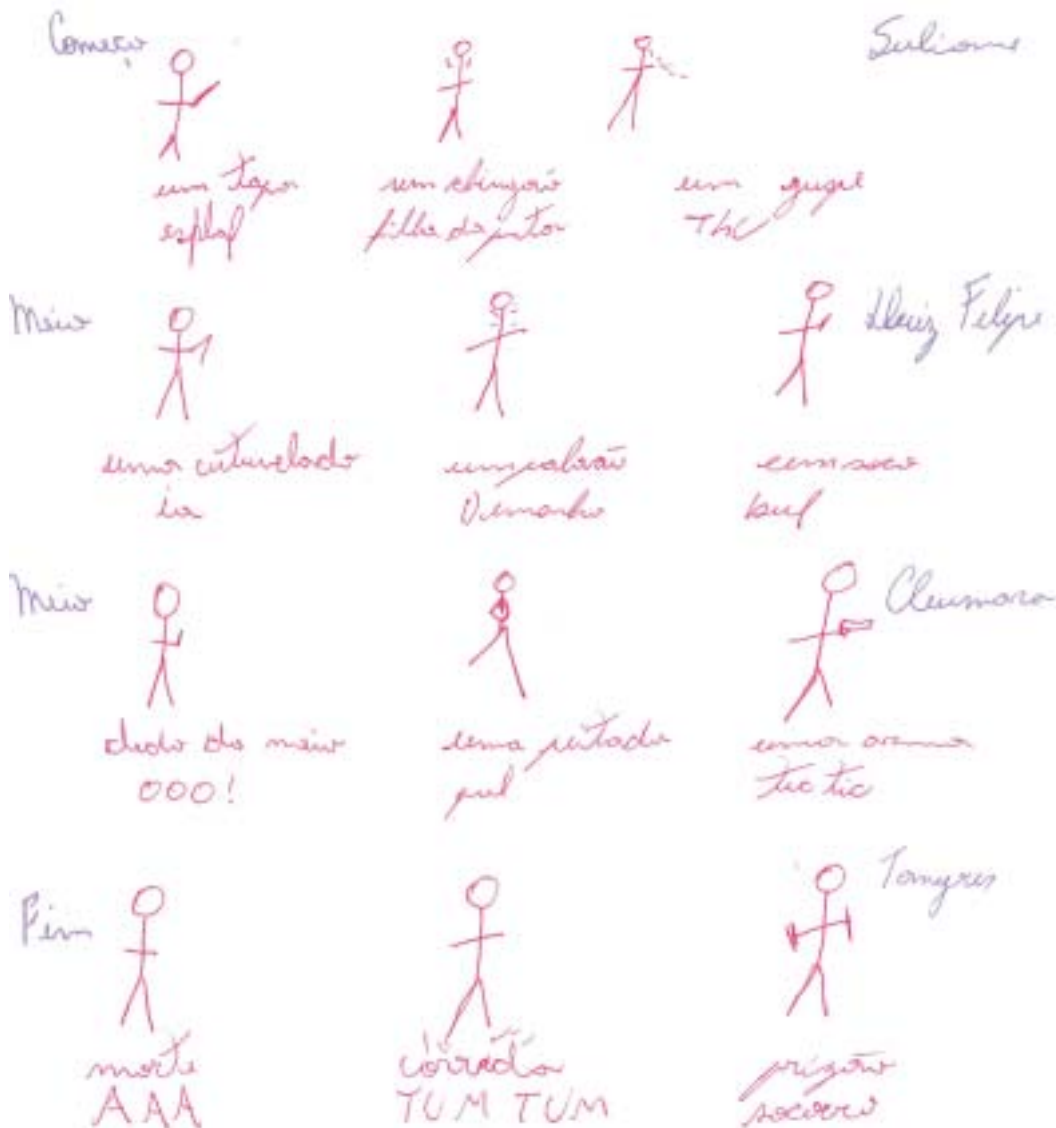 Começo
Juliane
um tapa
esplaf
um chingão
filha da puta
um guspe
Thc
Meio
Lluiz Felipe
uma cutuvelada
ia
um palavrão
Demonho
um soco
buf
Meio
Cleumara
dedo do meio
OOO!
uma peitada
puf
uma arma
tic tic
Fim
Tamyres
morte
AAA
corrada
TUM TUM
prizão
socorro